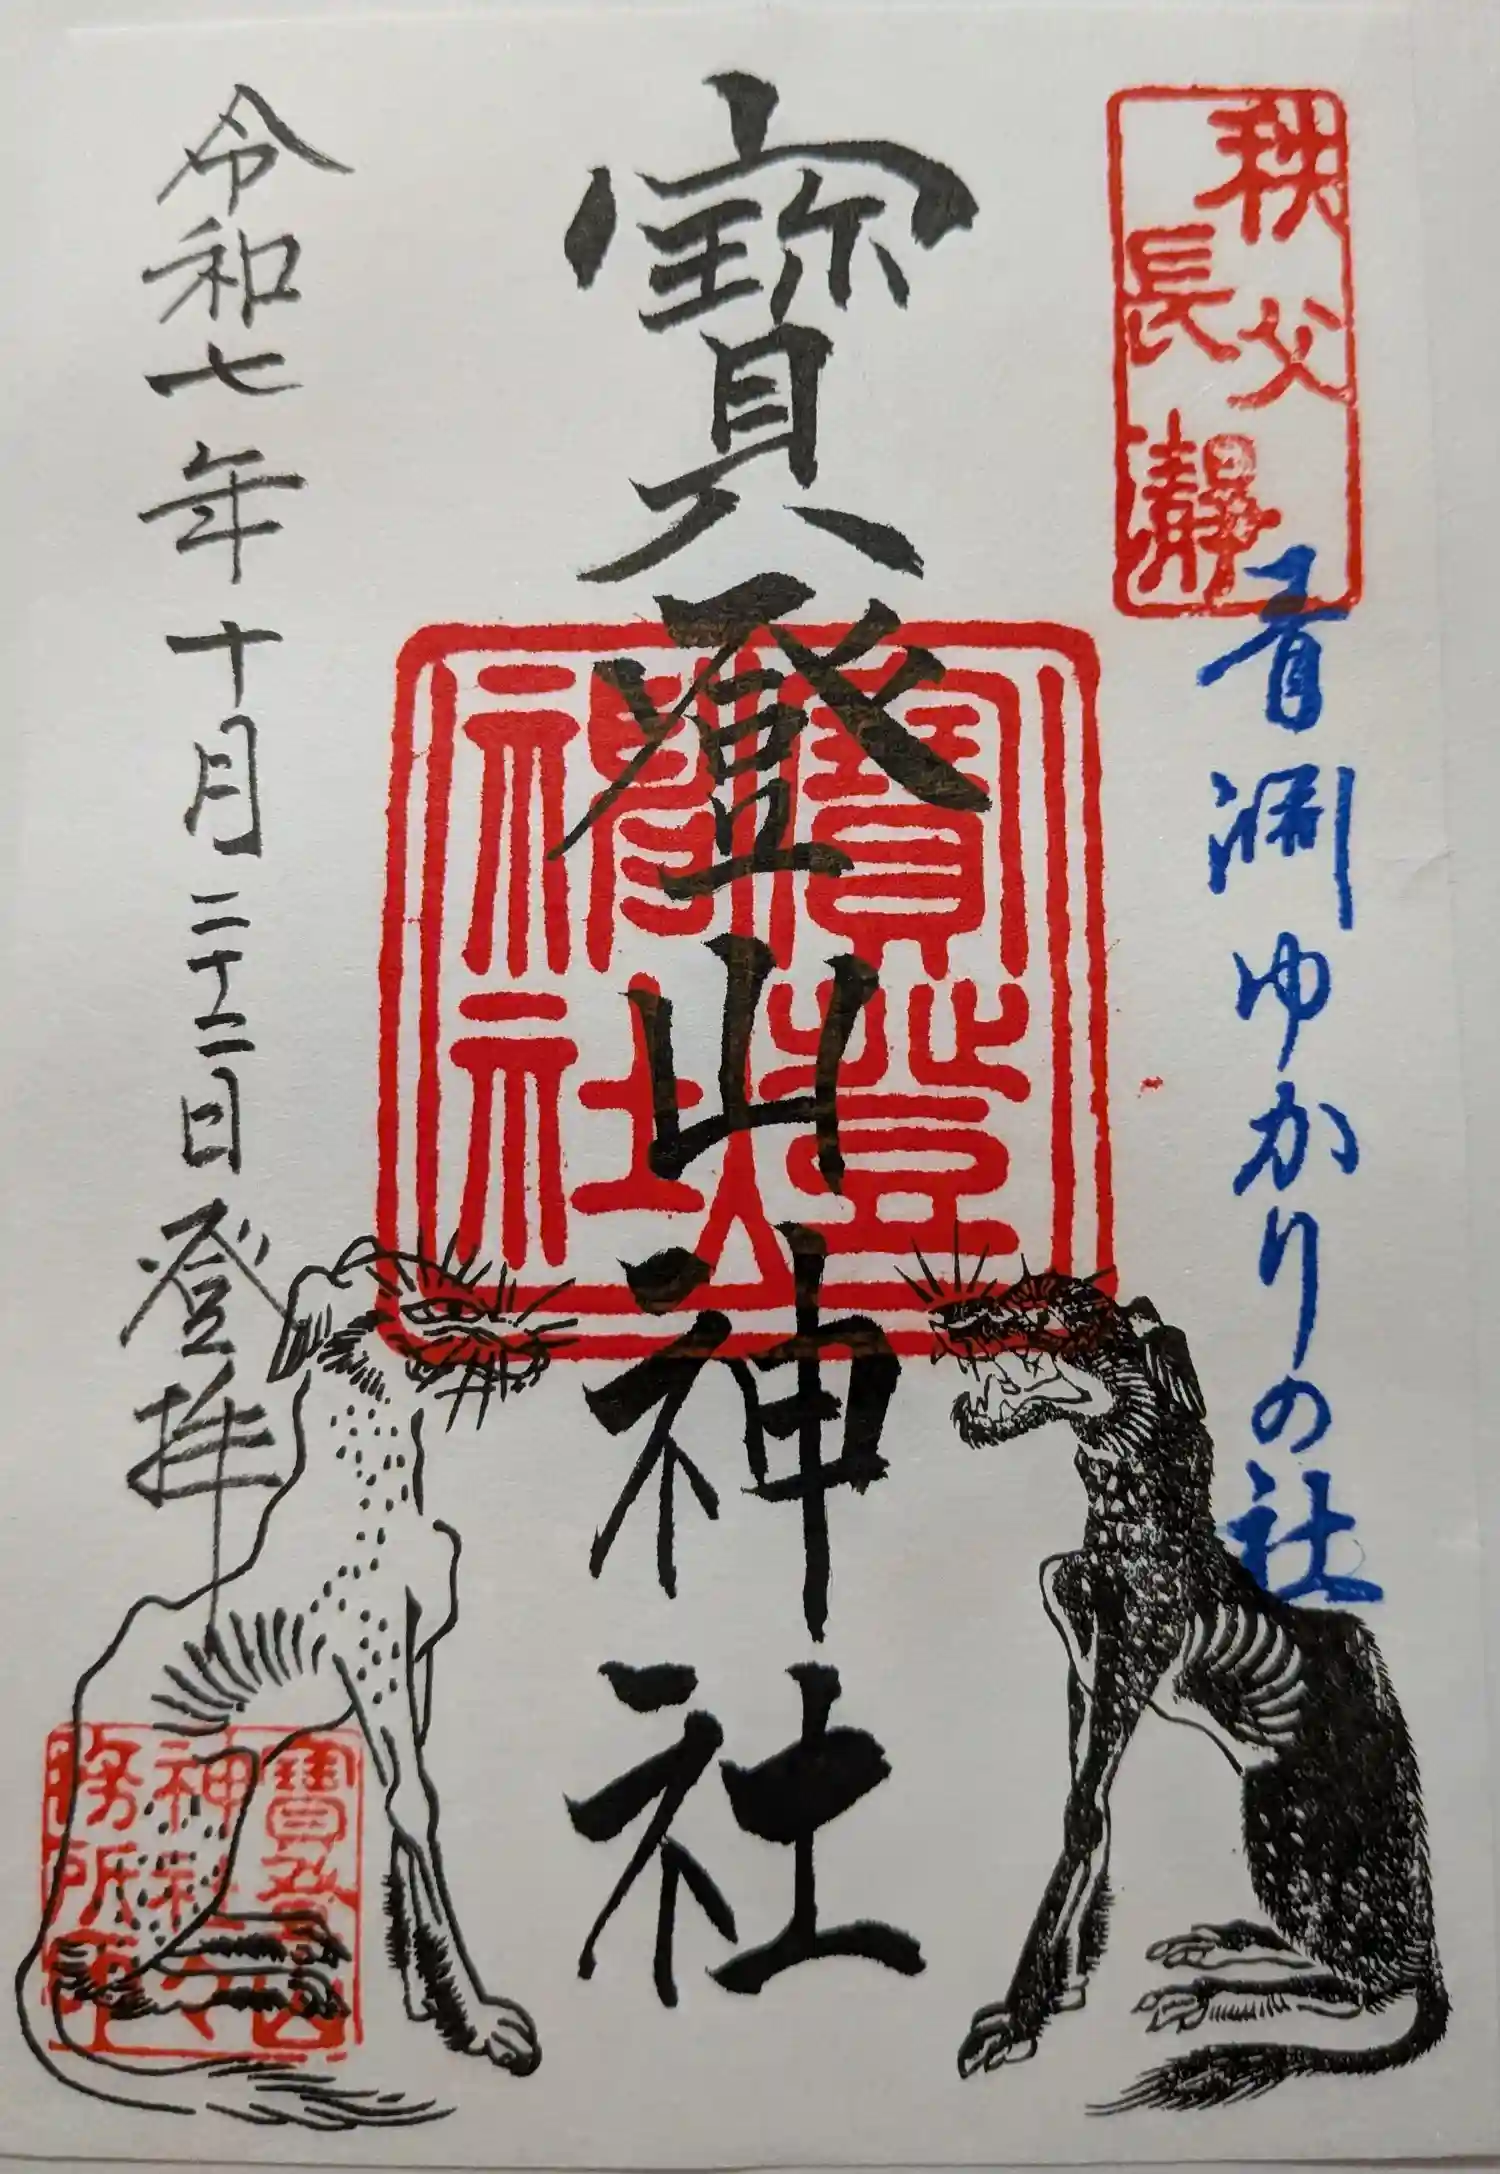 秩父
長瀞
青淵ゆかりの社
寳登山神社
寶登山
神社
令和七年十月二十二日登拝
寶登山
神社々
務所印